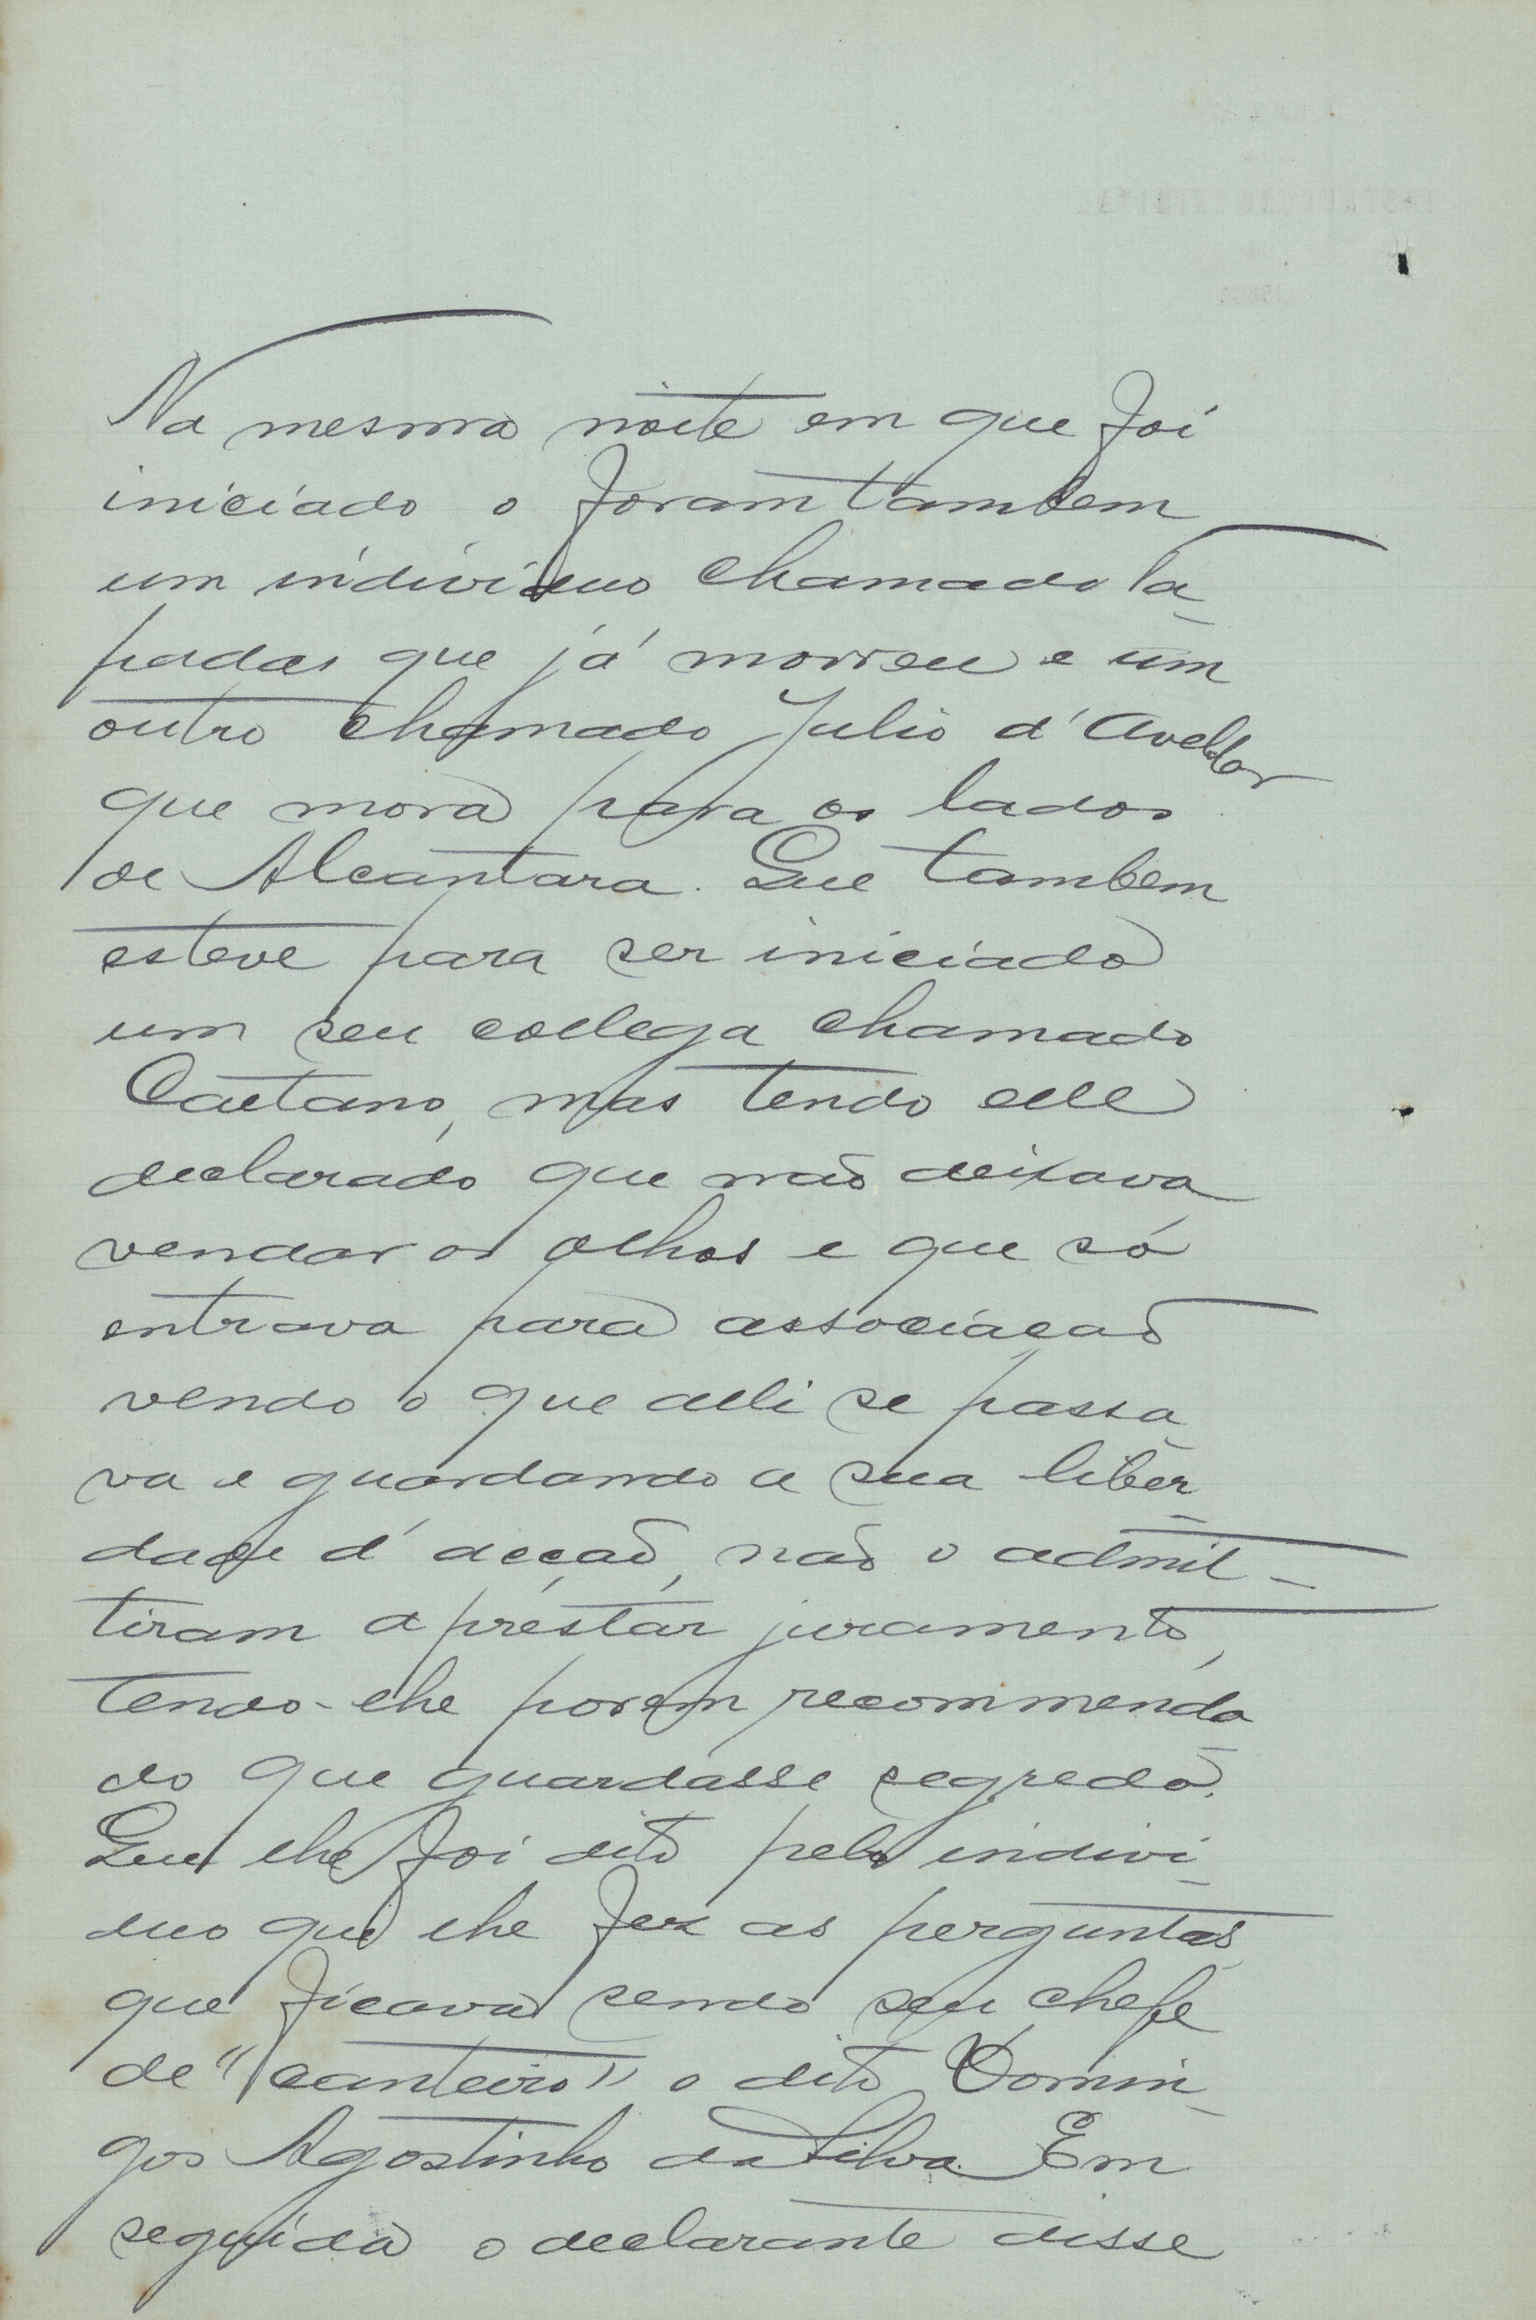 Na mesma noite em que foi
iniciado o foram tambem
um individuo chamado Ta-
padas que já morreu e um
outro chamado Julio d'Avellar
que mora para os lados
de Alcantara. Que tambem
esteve para ser iniciado
um seu collega chamado
Caetano, mas tendo elle
declarado que não deixava
vendar os olhos e que só
entrava para associação
vendo o que alli se passa-
va e guardando a sua liber-
dade d'acção, não o admit-
tiram a prestar juramento,
tendo-lhe porem recommenda-
do que guardasse segredo.
Que lhe foi dito pelo indivi-
duo que lhe fez as perguntas
que ficava sendo seu chefe
de "canteiro" o dito Domin-
gos Agostinho da Silva. Em
seguida o declarante disse